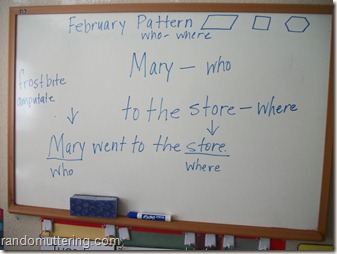 February Pattern
who - where
Mary - who
frostbite
amputate
to the store - where
Mary went to the store
who
where
EXPO
randomuttering.com